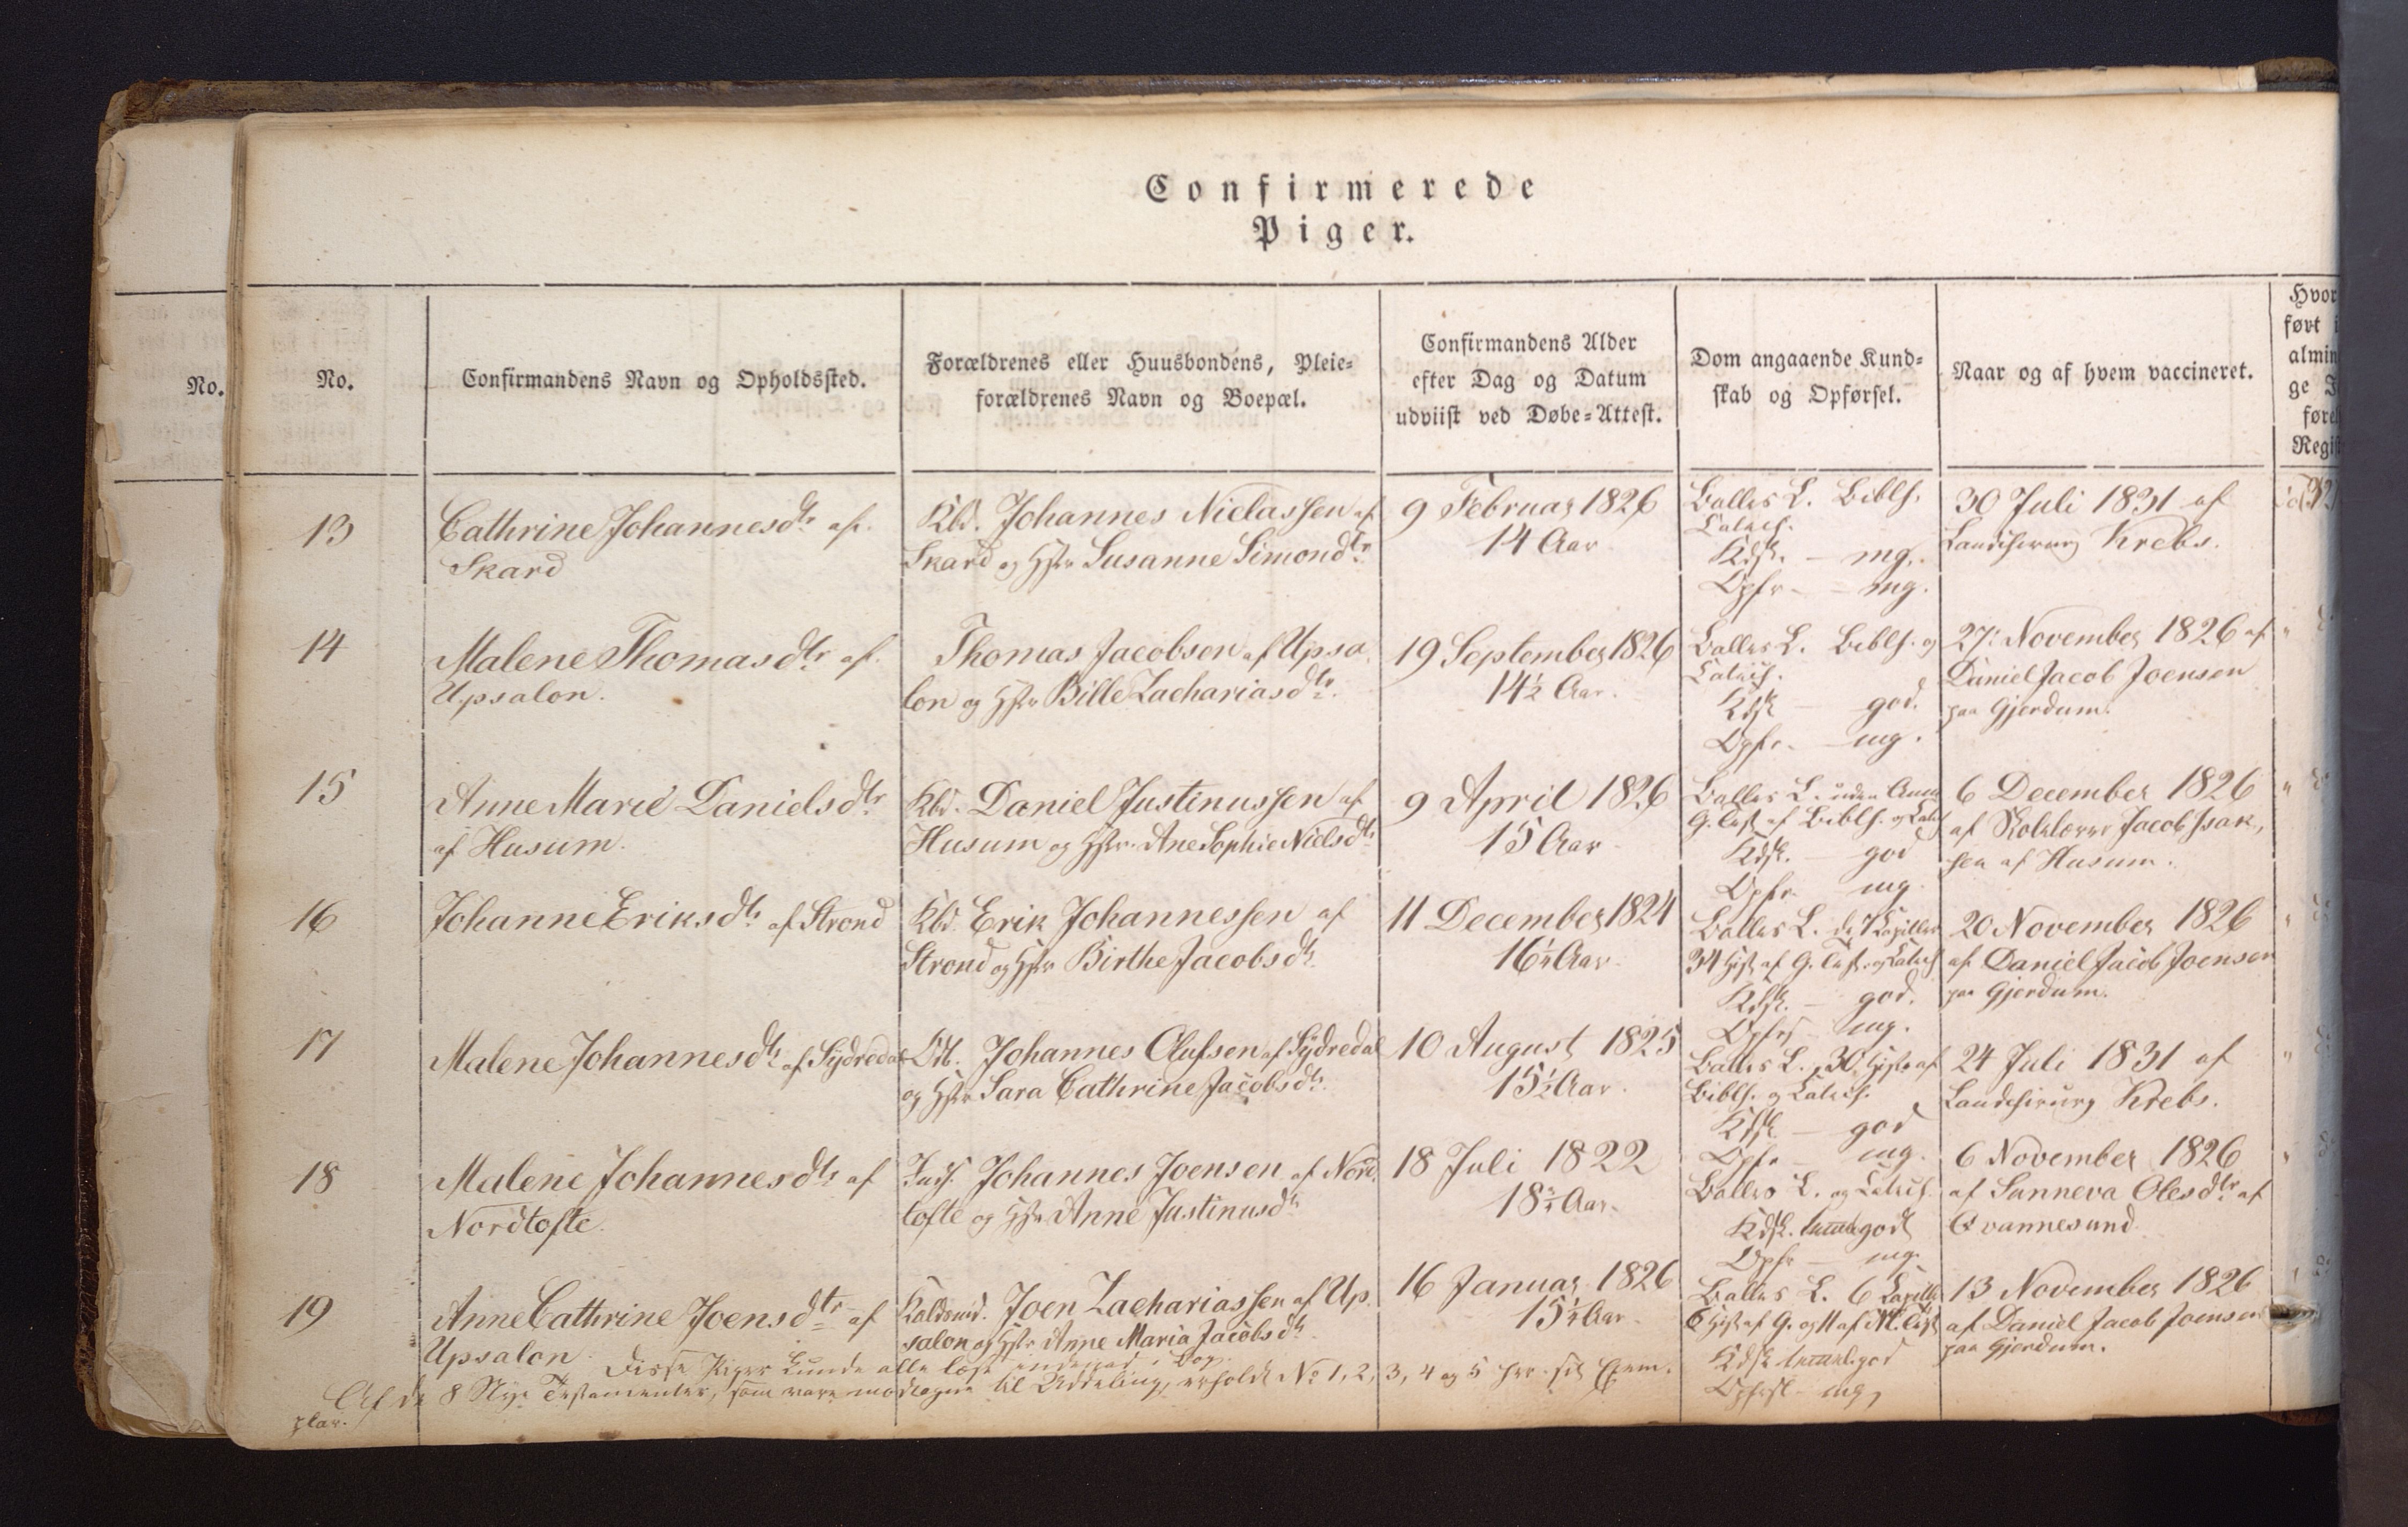 Confirmerede
Piger.
No.
No.
Confirmandens Navn og Opholdssted.
Forældrenes eller Huusbondens, Pleie-
forældrenes Navn og Boepæl.
Confirmandens Alder
efter Dag og Datum
udviist ved Døbe-Attest.
Dom angaaende Kund-
skab og Opførsel.
Naar og af hvem vaccineret.
Hvor
ført i
almin
ge J
føre
Regi
13
Cathrine Johannesdtr af
Skard
Kbd. Johannes Niclassen af
Skard og Hstr Susanne Simondtr
9 Februar 1826
14 Aar
Balles L. Biblh.
Catech.
Kdsk. - mg.
Opfr - mg.
30 Juli 1831 af
Landchirurg Krebs.
14
Malene Thomasdtr af
Upsalon.
Thomas Jacobsen af Upsa
lon og Hstr Bille Zachariasdtr.
19 September 1826
14½ Aar.
Balles L. Biblh. og
Catech.
Kdsk - god.
Opfr. - mg.
27. November 1826 af
Daniel Jacob Joensen
paa Gjerdum.
15
Anne Marie Danielsdtr
af Husum.
Kbd. Daniel Justinussen af
Husum og Hstr. Ane Sophie Nielsdtr
9 April 1826
15 Aar
Balles L. uden Anm
G. Test af Biblh. og Catech
Kdsk. - god
Opfr. mg.
6 December 1826
af Skolelærer Jacob Isak,
sen af Husum.
16
Johanne Eriksdtr af Strond
Kbd. Erik Johannessen af
Strond og Hstr Birthe Jacobsdtr.
11 December 1824
16¼ Aar.
Balles L. de 7 Capitler
34 Hist af G. Test. og Catech
Kdsk. - god.
Opfrs mg.
20 November 1826
af Daniel Jacob Joensen
paa Gjerdum.
17
Malene Johannesdtr af Sydredal
Johannes Olufsen af Sydredal
og Hstr Sara Cathrine Jacobsdtr.
10 August 1825
15½ Aar.
Balles L., 30 Hist. af
Biblh. og Catech.
Kdsk - god
Opfr - mg.
24 Juli 1831 af
Landchirurg Krebs.
18
Malene Johannesdtr af
Nordtofte.
Inds. Johannes Joensen af Nord
tofte og Hstr Anne Justinusdtr
18 Juli 1822
18¾ Aar.
Balles L. og Catech.
Kdsk. temmelgodt
Opfr - mg.
6 November 1826
af Sunneva Olesdtr af
Qvannesund
19
Anne Cathrine Joensdtr af
Upsalon
Joen Zachariassen af Up
salon og Hstr Anne Maria Jacobsdtr.
16 Januar 1826
15¼ Aar.
Balles L. 6 Capitler
6 Hist af G. og 11 af N. Test
Kdsk temmel.god
Opfrsl - mg,
13 November 1826
af Daniel Jacob Joensen
paa Gjerdum.
Disse Piger kunde alle læse indenad i Bog.
Af de 8 Nye Testamenter, som vare modtagne til Uddeling, erholdt No 1, 2, 3, 4 og 5 hver sit Exem-
plar.